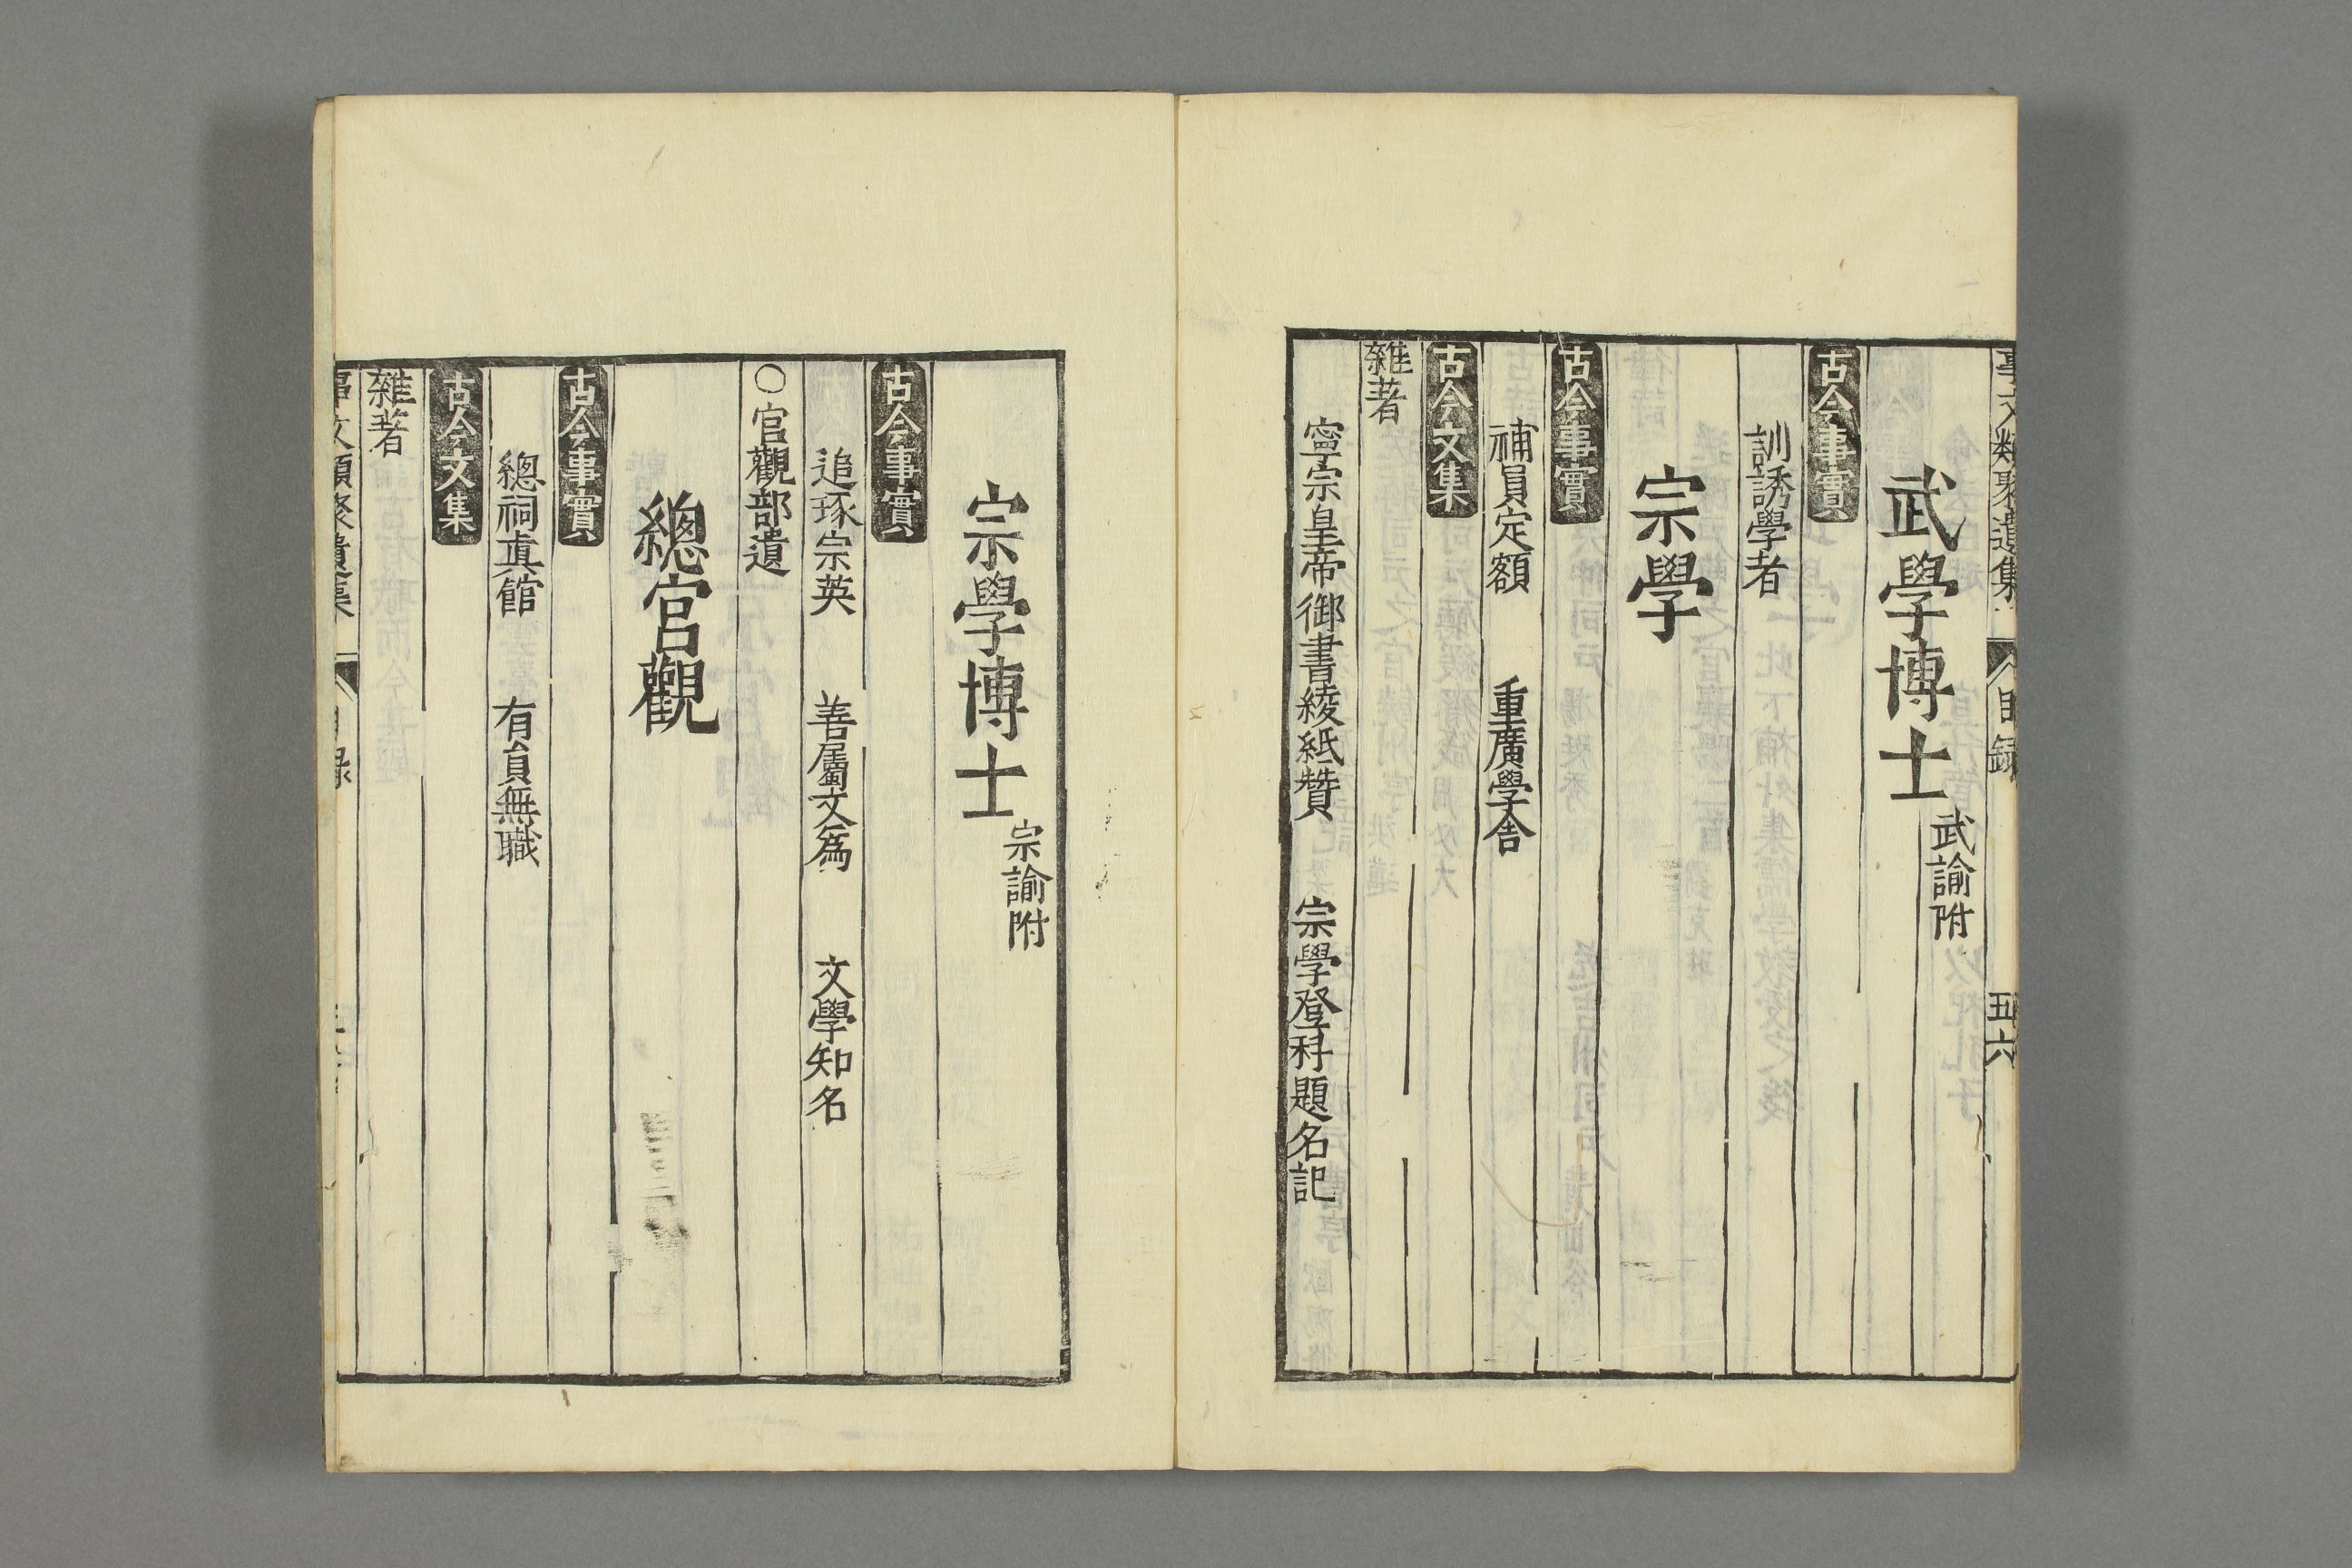 事文類聚遺集 目錄 五六
武學博士 武諭附
古今事實
訓誘學者
宗學
古今事實
補員定額 重廣學舎
古今文集
雜著
寧宗皇帝御書綾紙贊 宗學登科題名記
宗學博士 宗諭附
古今事實
追琢宗英 善屬文為 文學知名
○官觀部遺
總官觀
古今事實
總祠真館 有員無職
古今文集
雜著
事文類聚遺集 目錄